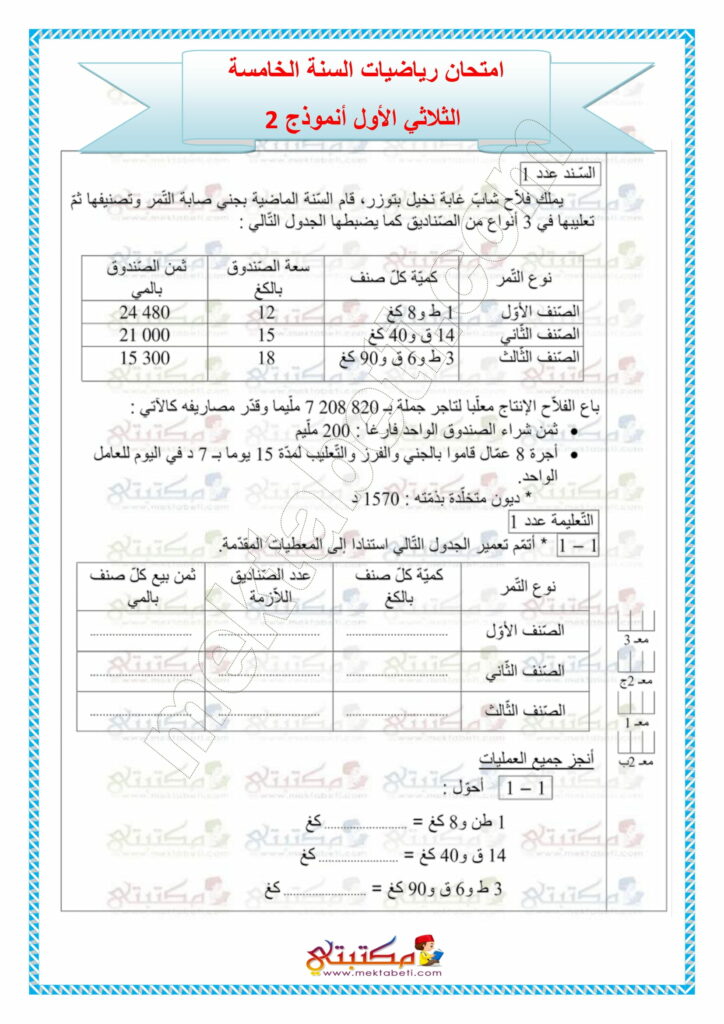 امتحان رياضيات السنة الخامسة
الثلاثي الأول أنموذج 2
السّند عدد 1
يملك فلاّح شابّ غابة نخيل بتوزر، قام السّنة الماضية بجني صابة التّمر وتصنيفها ثمّ
تعليبها في 3 أنواع من الصّناديق كما يضبطها الجدول التّالي :
نوع التّمر | كميّة كلّ صنف | سعة الصّندوق بالكغ | ثمن الصّندوق بالمي
الصّنف الأوّل | 1 ط و8 كغ | 12 | 24 480
الصّنف الثّاني | 14 ق و40 كغ | 15 | 21 000
الصّنف الثّالث | 3 ط و6 ق و90 كغ | 18 | 15 300
باع الفلاّح الإنتاج معلّبا لتاجر جملة بـ 820 208 7 ملّيما وقدّر مصاريفه كالآتي :
• ثمن شراء الصندوق الواحد فارغا : 200 ملّيم
• أجرة 8 عمّال قاموا بالجني والفرز والتّعليب لمدّة 15 يوما بـ 7 د في اليوم للعامل
الواحد.
* ديون متخلّدة بذمّته : 1570 د
التّعليمة عدد 1
1 – 1 * أتمّم تعمير الجدول التّالي استنادا إلى المعطيات المقدّمة.
نوع التّمر | كميّة كلّ صنف بالكغ | عدد الصّناديق اللاّزمة | ثمن بيع كلّ صنف بالمي
الصّنف الأوّل
الصّنف الثّاني
الصّنف الثّالث
معـ 3
معـ 2ج
معـ 1
معـ 2ب
أنجز جميع العمليات
1 – 1 أحوّل :
1 طن و8 كغ = .................... كغ
14 ق و40 كغ = .................... كغ
3 ط و6 ق و90 كغ = .................... كغ
مكتبتي
www.mektabeti.com
mektabeti.com